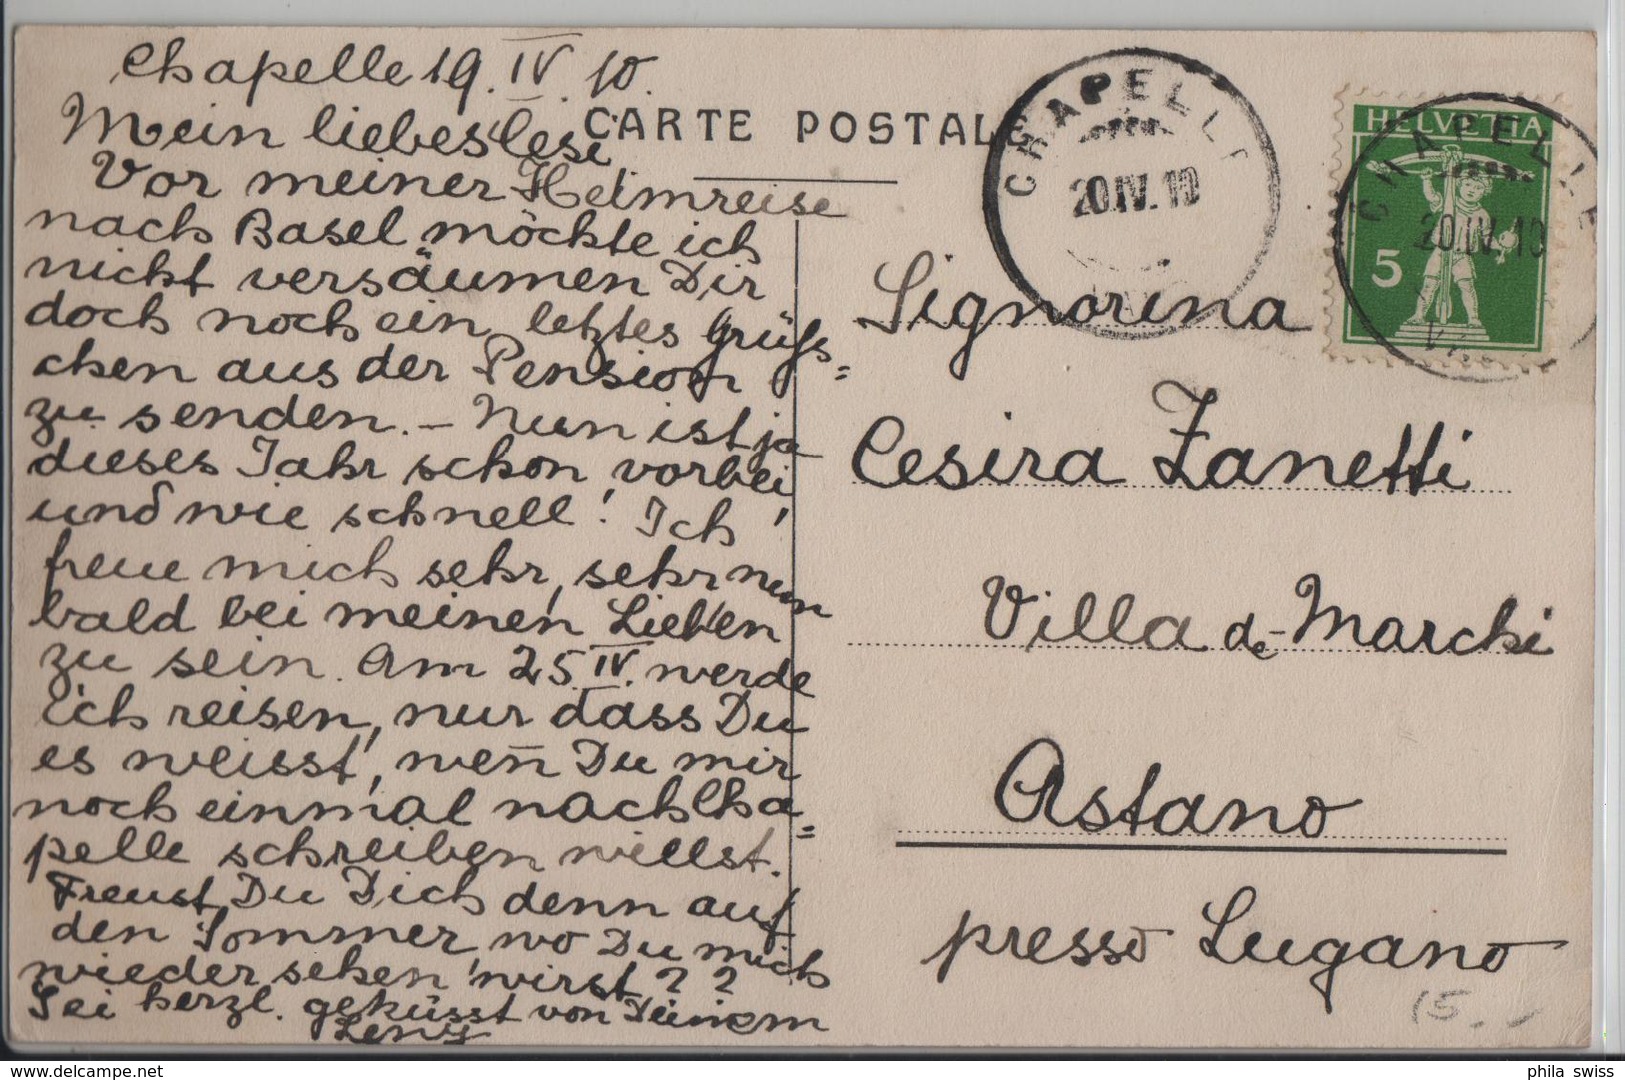 Chapelle 19. IV. 10.
Mein liebes
Vor meiner Heimreise
nach Basel möchte ich
nicht versäumen Dir
doch noch ein letztes Grüss=
chen aus der Pension
zu senden. — Nun ist ja
dieses Jahr schon vorbei
und wie schnell! Ich
freue mich sehr, sehr nun
bald bei meinen Lieben
zu sein. Am 25. IV. werde
ich reisen, nur dass Du
es weisst, wen̄ Du mir
noch einmal nach Cha=
pelle schreiben willst.
Freust Du Dich denn auf
den Sommer, wo Du mich
wieder sehen wirst??
Sei herzl. geküsst von Deinem
Leny
CARTE POSTALE
CHAPELLE
20.IV.10
HELVETIA
5
CHAPELLE
20.IV.10
Signorina
Cesira Zanetti
Villa de-Marchi
Astano
presso Lugano
15.-
phila swiss